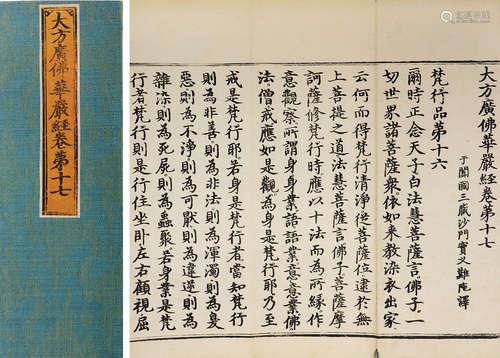 大方廣佛華嚴經卷第十七
大方廣佛華嚴經卷第十七
于闐國三藏沙門實叉難陀譯
梵行品第十六
爾時正念天子白法慧菩薩言佛子一
切世界諸菩薩衆依如來教染衣出家
云何而得梵行清淨從菩薩位逮於無
上菩提之道法慧菩薩言佛子菩薩摩
訶薩修梵行時應以十法而為所緣作
意觀察所謂身身業語語業意意業佛
法僧戒應如是觀為身是梵行耶乃至
戒是梵行耶若身是梵行者當知梵行
則為非善則為非法則為渾濁則為臭
惡則為不淨則為可厭則為違逆則為
雜染則為死屍則為蟲聚若身業是梵
行者梵行則是行住坐卧左右顧視屈